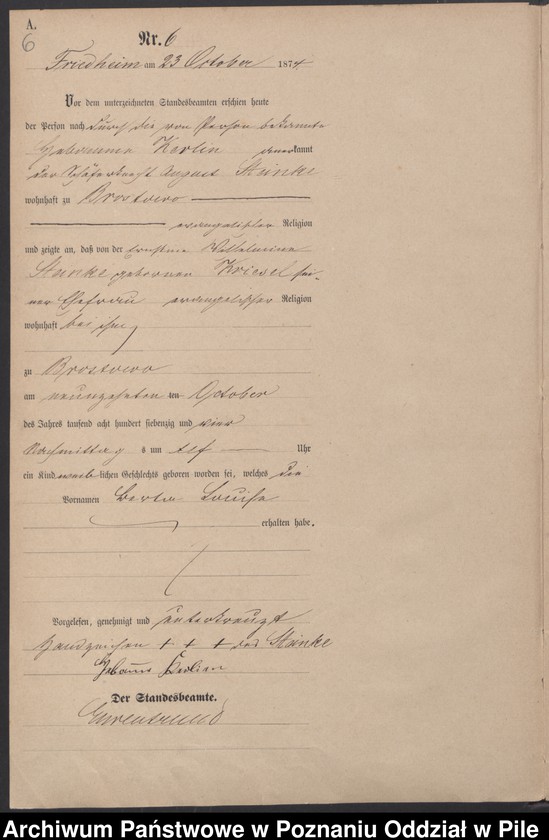 A.
6
Nr. 6
Friedheim am 23 October 1874
Vor dem unterzeichneten Standesbeamten erschien heute
der Person nach durch die von Person bekannte
Hebamme Kerlin anerkannt
der Schäferknecht August Steinke
wohnhaft zu Brostowo
evangelischer Religion
und zeigte an, daß von der Ernstine Wilhelmine
Steinke geborenen Kriesel sei-
ner Ehefrau evangelischer Religion
wohnhaft bei ihm
zu Brostowo
am neunzehnten ten October
des Jahres tausend acht hundert siebenzig und vier
Nachmittag s um elf Uhr
ein Kind weib lichen Geschlechts geboren worden sei, welches die
Vornamen Berta Louise
erhalten habe.
Vorgelesen, genehmigt und unterkreuzt
Handzeichen + + + des Steinke
Hebamme Kerlien
Der Standesbeamte.
Archiwum Państwowe w Poznaniu Oddział w Pile